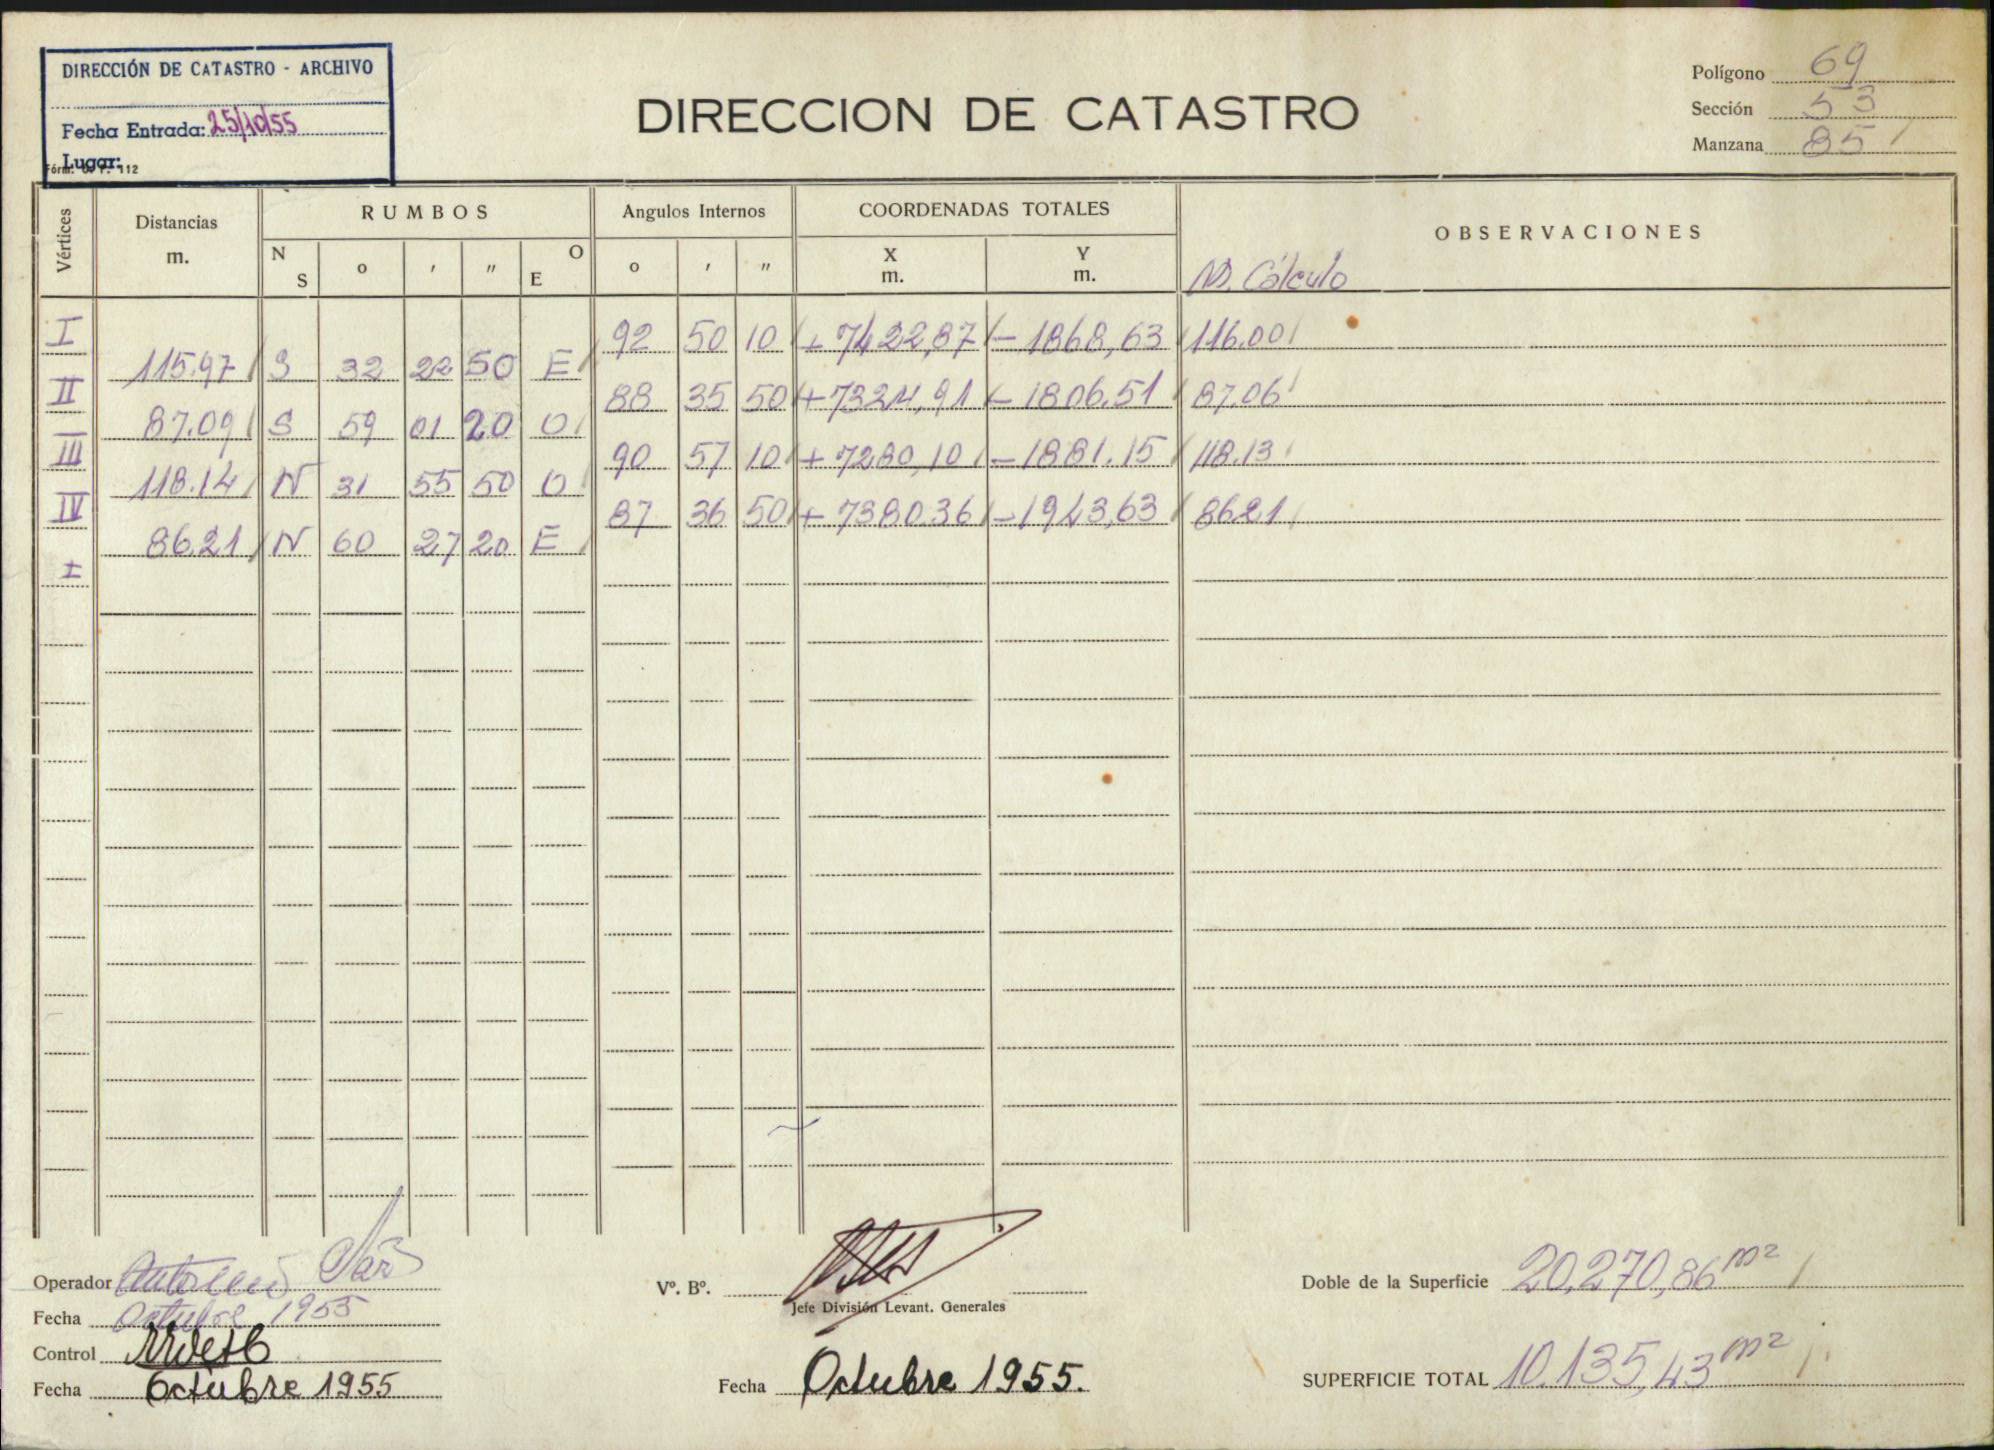 DIRECCIÓN DE CATASTRO - ARCHIVO
Fecha Entrada: 25/10/55
Lugar:
112
DIRECCION DE CATASTRO
Polígono 69
Sección 53
Manzana 85
Vértices Distancias m. RUMBOS Angulos Internos COORDENADAS TOTALES OBSERVACIONES
N S o ' " E O o ' " X m. Y m. Cálculo
I 92 50 10 + 7422,87 - 1868,63 116.00
115.97 S 32 22 50 E
II 88 35 50 + 7324,91 - 1806.51 87.06
87.09 S 59 01 20 O
III 90 57 10 + 7280,10 - 1881.15 118.13
118.14 N 31 55 50 O
IV 87 36 50 + 7380.36 - 1943,63 86.21
86.21 N 60 27 20 E
I
Operador
Fecha Octubre 1955
Control
Fecha Octubre 1955
Vº. Bº.
Jefe División Levant. Generales
Fecha Octubre 1955.
Doble de la Superficie 20.270,86 m²
SUPERFICIE TOTAL 10.135,43 m²